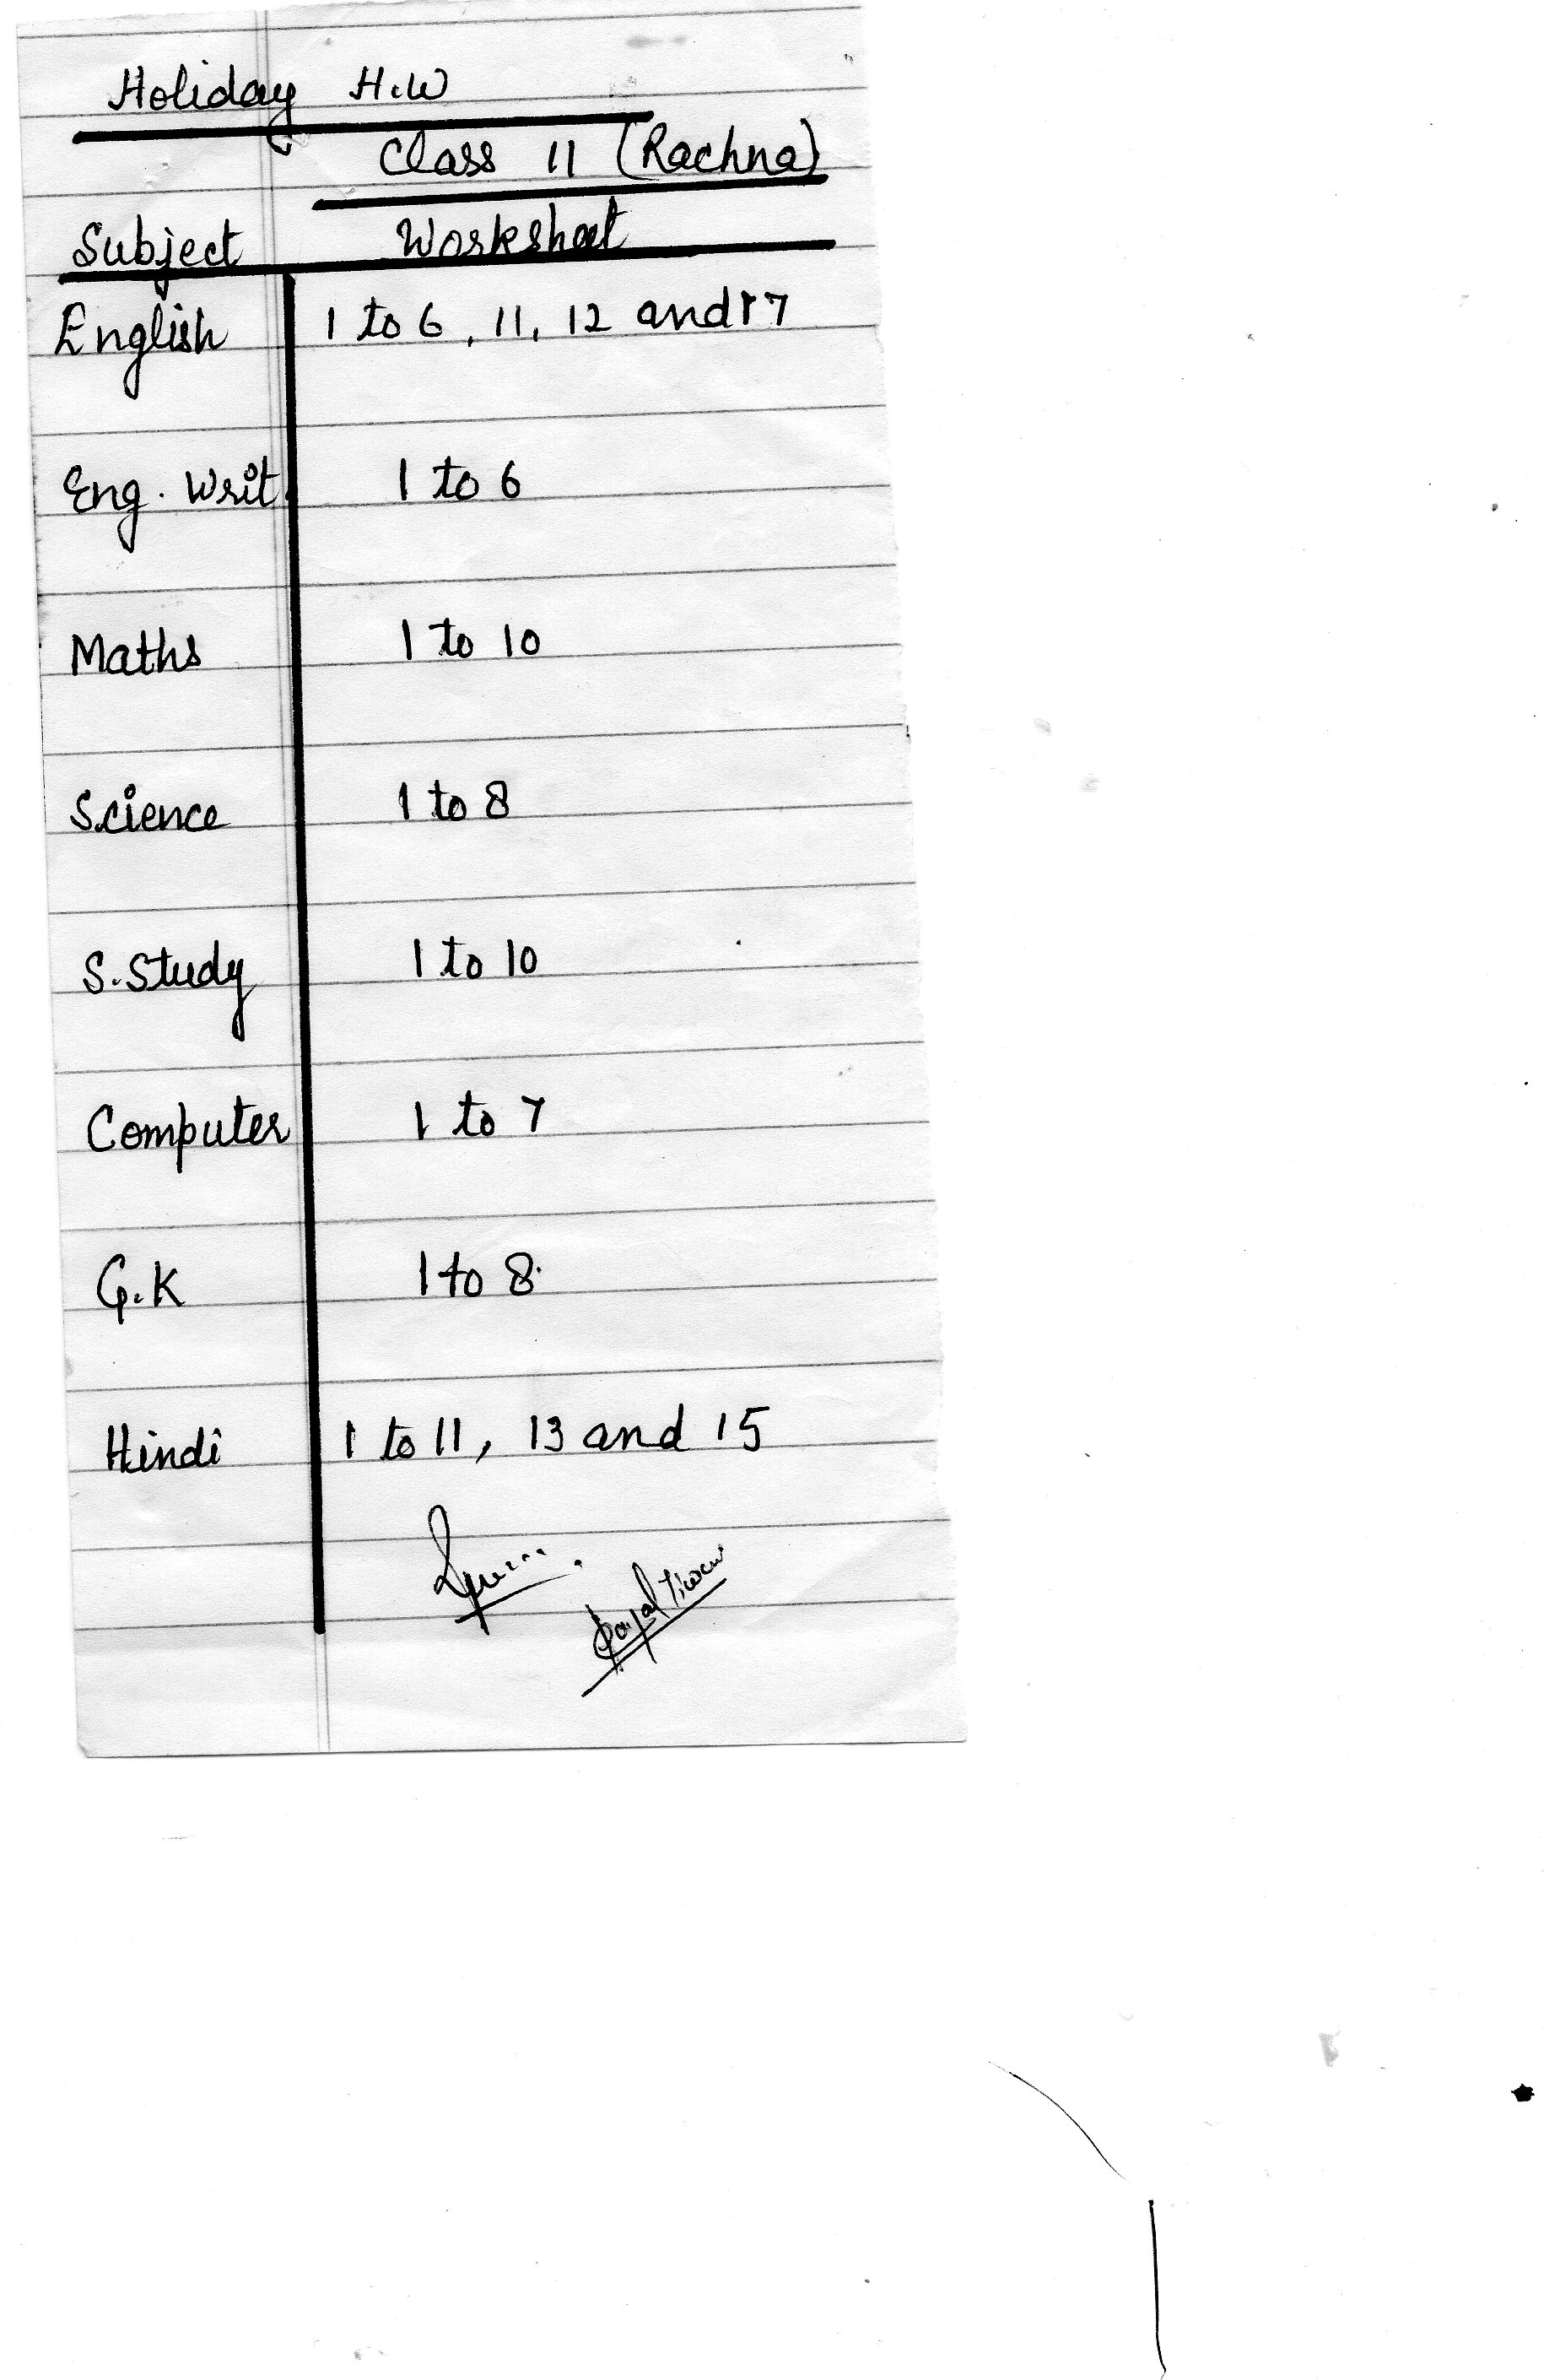 Holiday H.W
Class 11 (Rachna)
Subject Worksheet
English 1 to 6, 11, 12 and 17
Eng. Writ. 1 to 6
Maths 1 to 10
Science 1 to 8
S.Study 1 to 10
Computer 1 to 7
G.K 1 to 8.
Hindi 1 to 11, 13 and 15